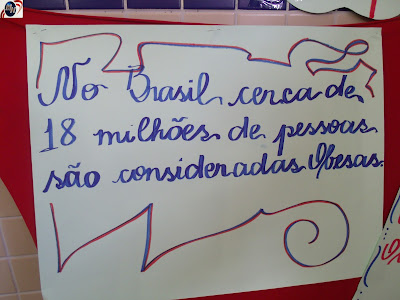 No Brasil cerca de
18 milhões de pessoas
são consideradas Obesas.